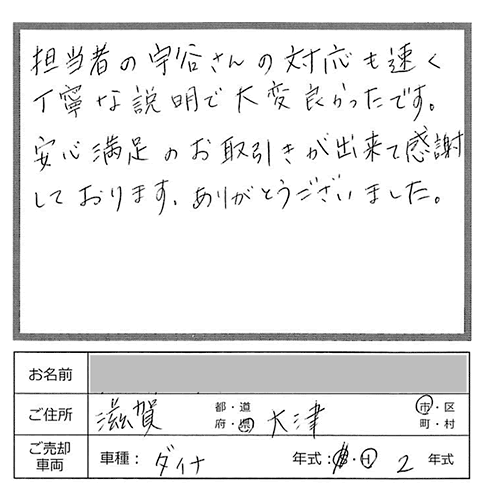 担当者の宇谷さんの対応も速く
丁寧な説明で大変良かったです。
安心満足のお取引きが出来て感謝
しております。ありがとうございました。
お名前
ご住所 滋賀 都・道 府・県 大津 市・区 町・村
ご売却車両 車種: ダイナ 年式: ・ 2 年式